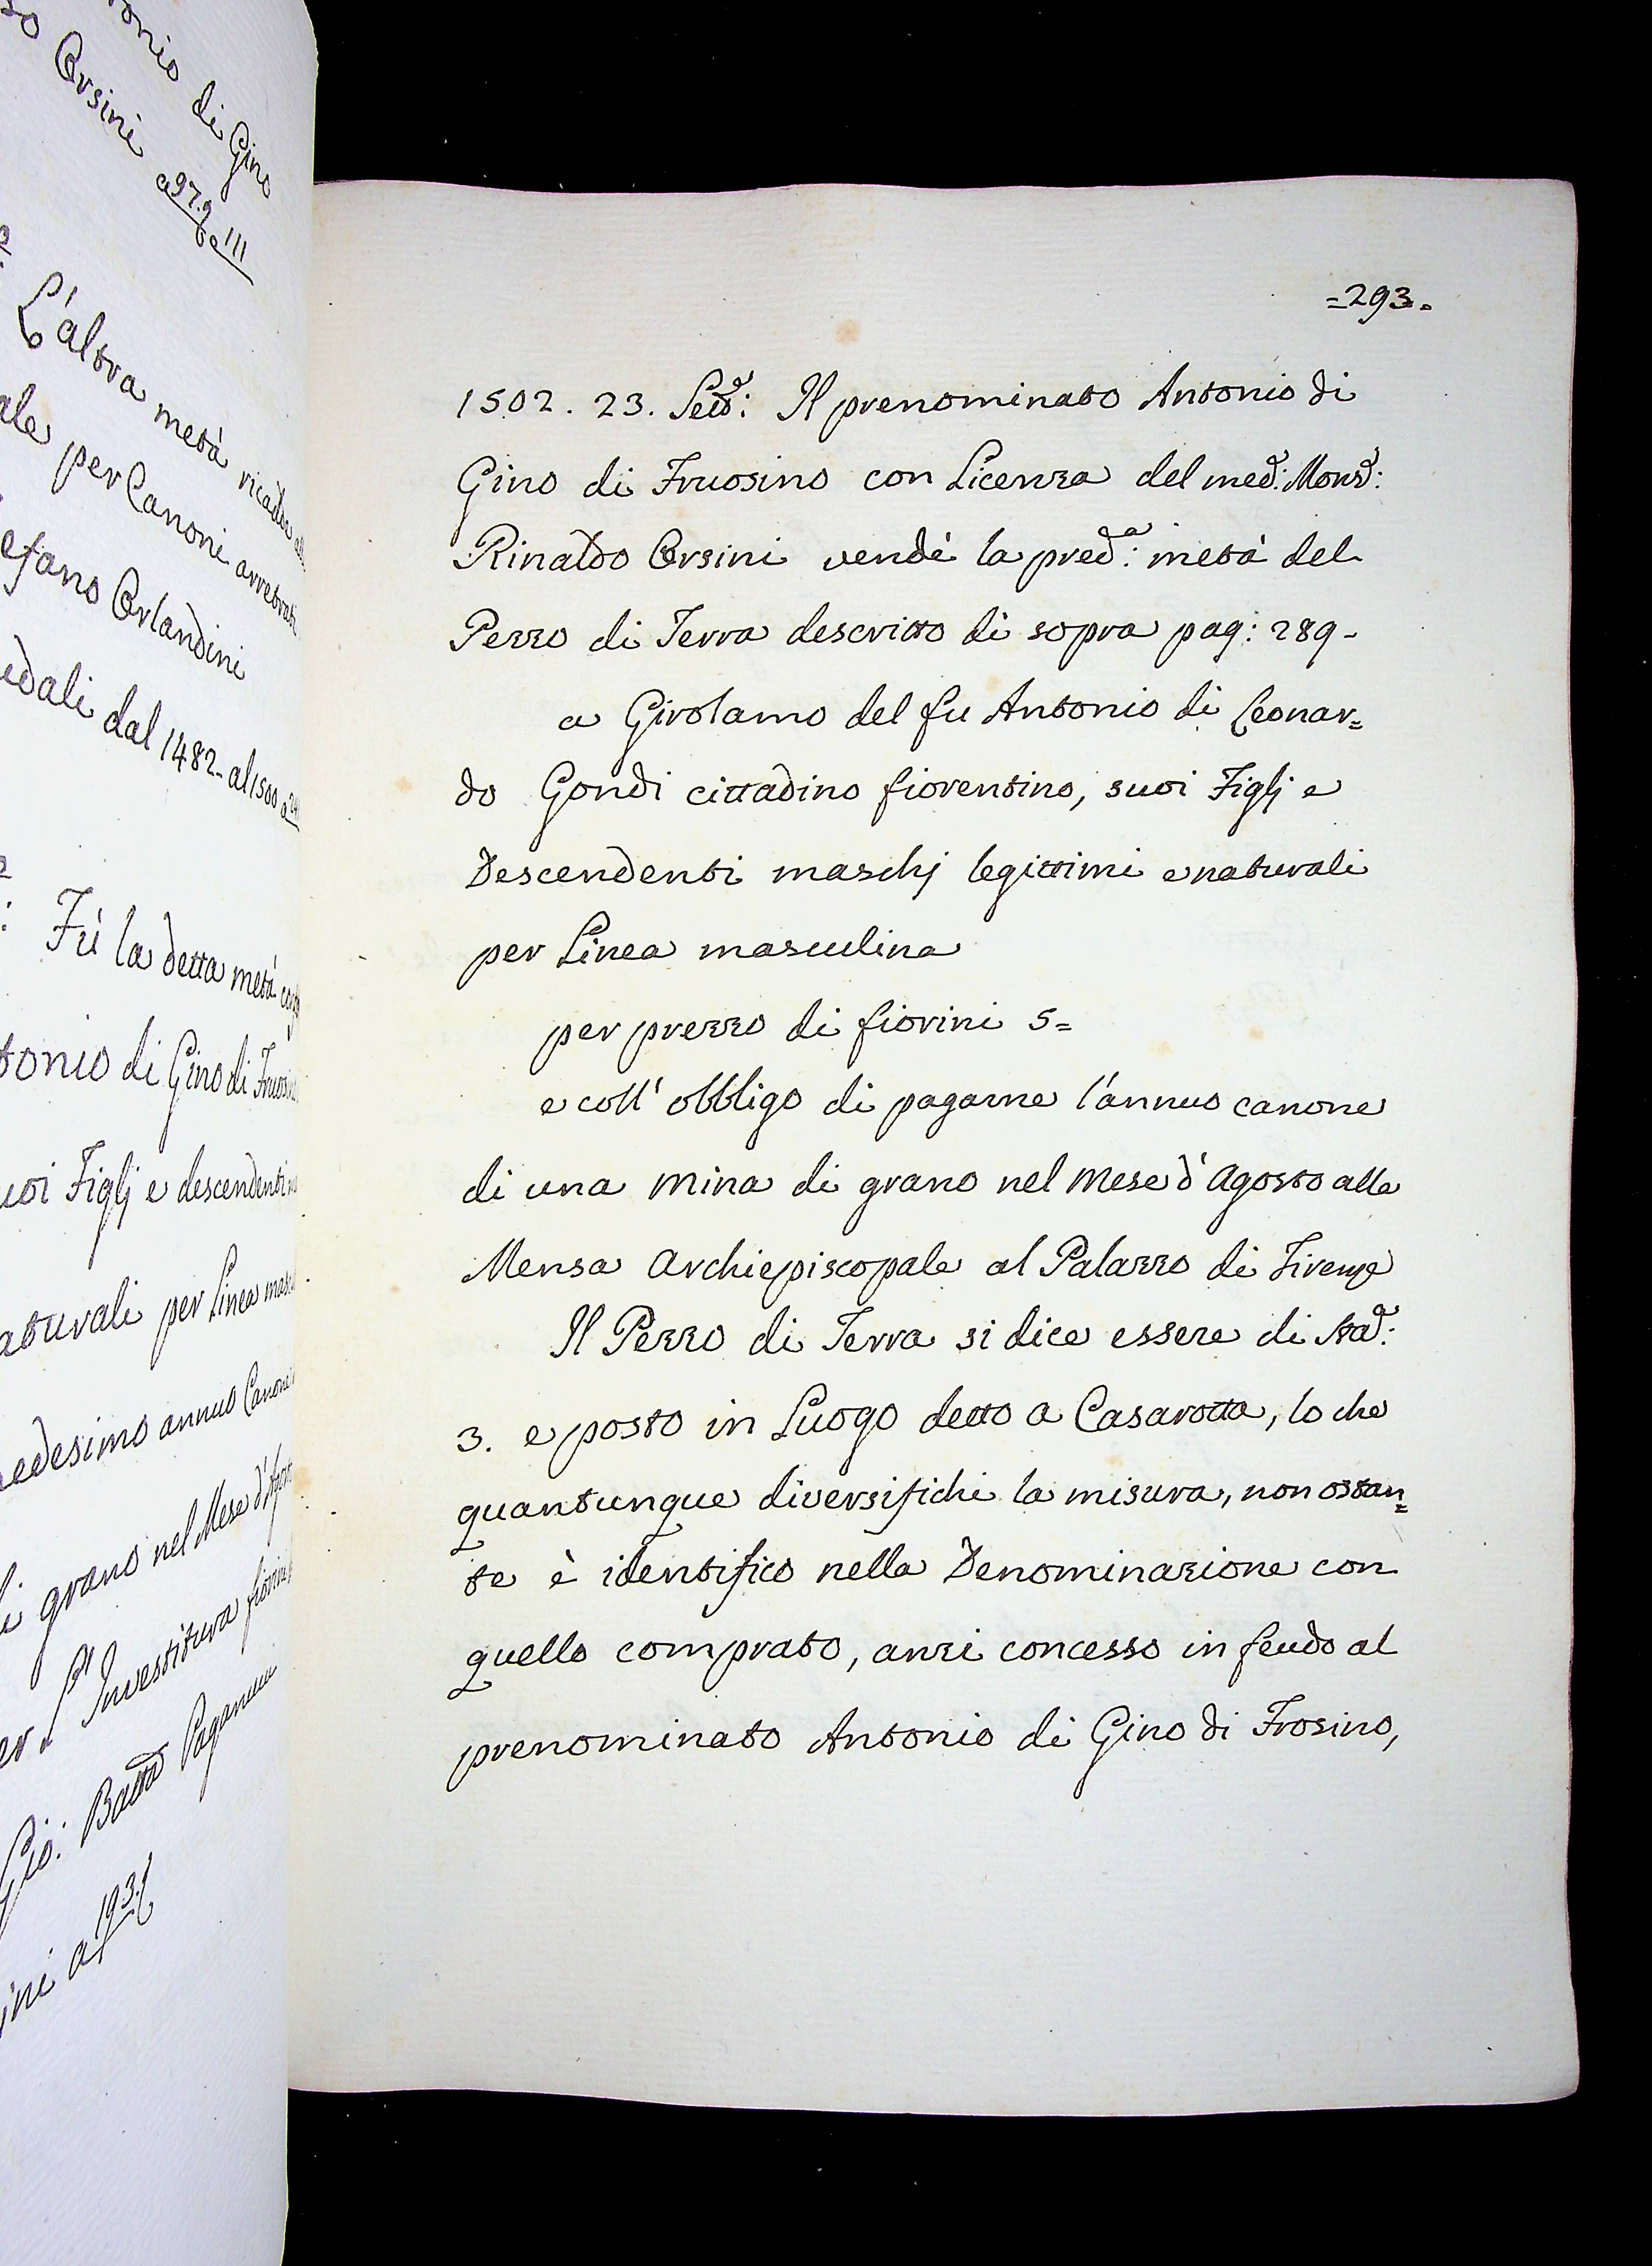 onio di Gino
so Orsini a 97. e a 111
L'altra metà ricadde
ale per Canoni arretrati
efano Orlandini
edali dal 1482 - al 1500
: Fù la detta metà
tonio di Gino di
uoi Figlj e descendenti
aturali per Linea
edesimo annuo Canone
i grano nel Mese d'
er l'Investitura fiorini
Gio: Batta
ini a 193.
=293.
1502. 23. Setᵉ: Il prenominato Antonio di
Gino di Fruosino con Licenza del medᵒ: Monsᵉ:
Rinaldo Orsini vendè la predᵃ: metà del
Pezzo di Terra descritto di sopra pag: 289 -
a Girolamo del fu Antonio di Leonar=
do Gondi cittadino fiorentino, suoi Figlj e
Descendenti maschj legittimi e naturali
per Linea masculina
per prezzo di fiorini 5=
e coll' obbligo di pagarne l'annuo canone
di una Mina di grano nel Mese d'Agosto alla
Mensa Archiepiscopale al Palazzo di Firenze
Il Pezzo di Terra si dice essere di staᵃ:
3. e posto in Luogo detto a Casarotta, lo che
quantunque diversifichi la misura, non ostan=
te è identifico nella Denominazione con
quello comprato, anzi concesso in feudo al
prenominato Antonio di Gino di Frosino,